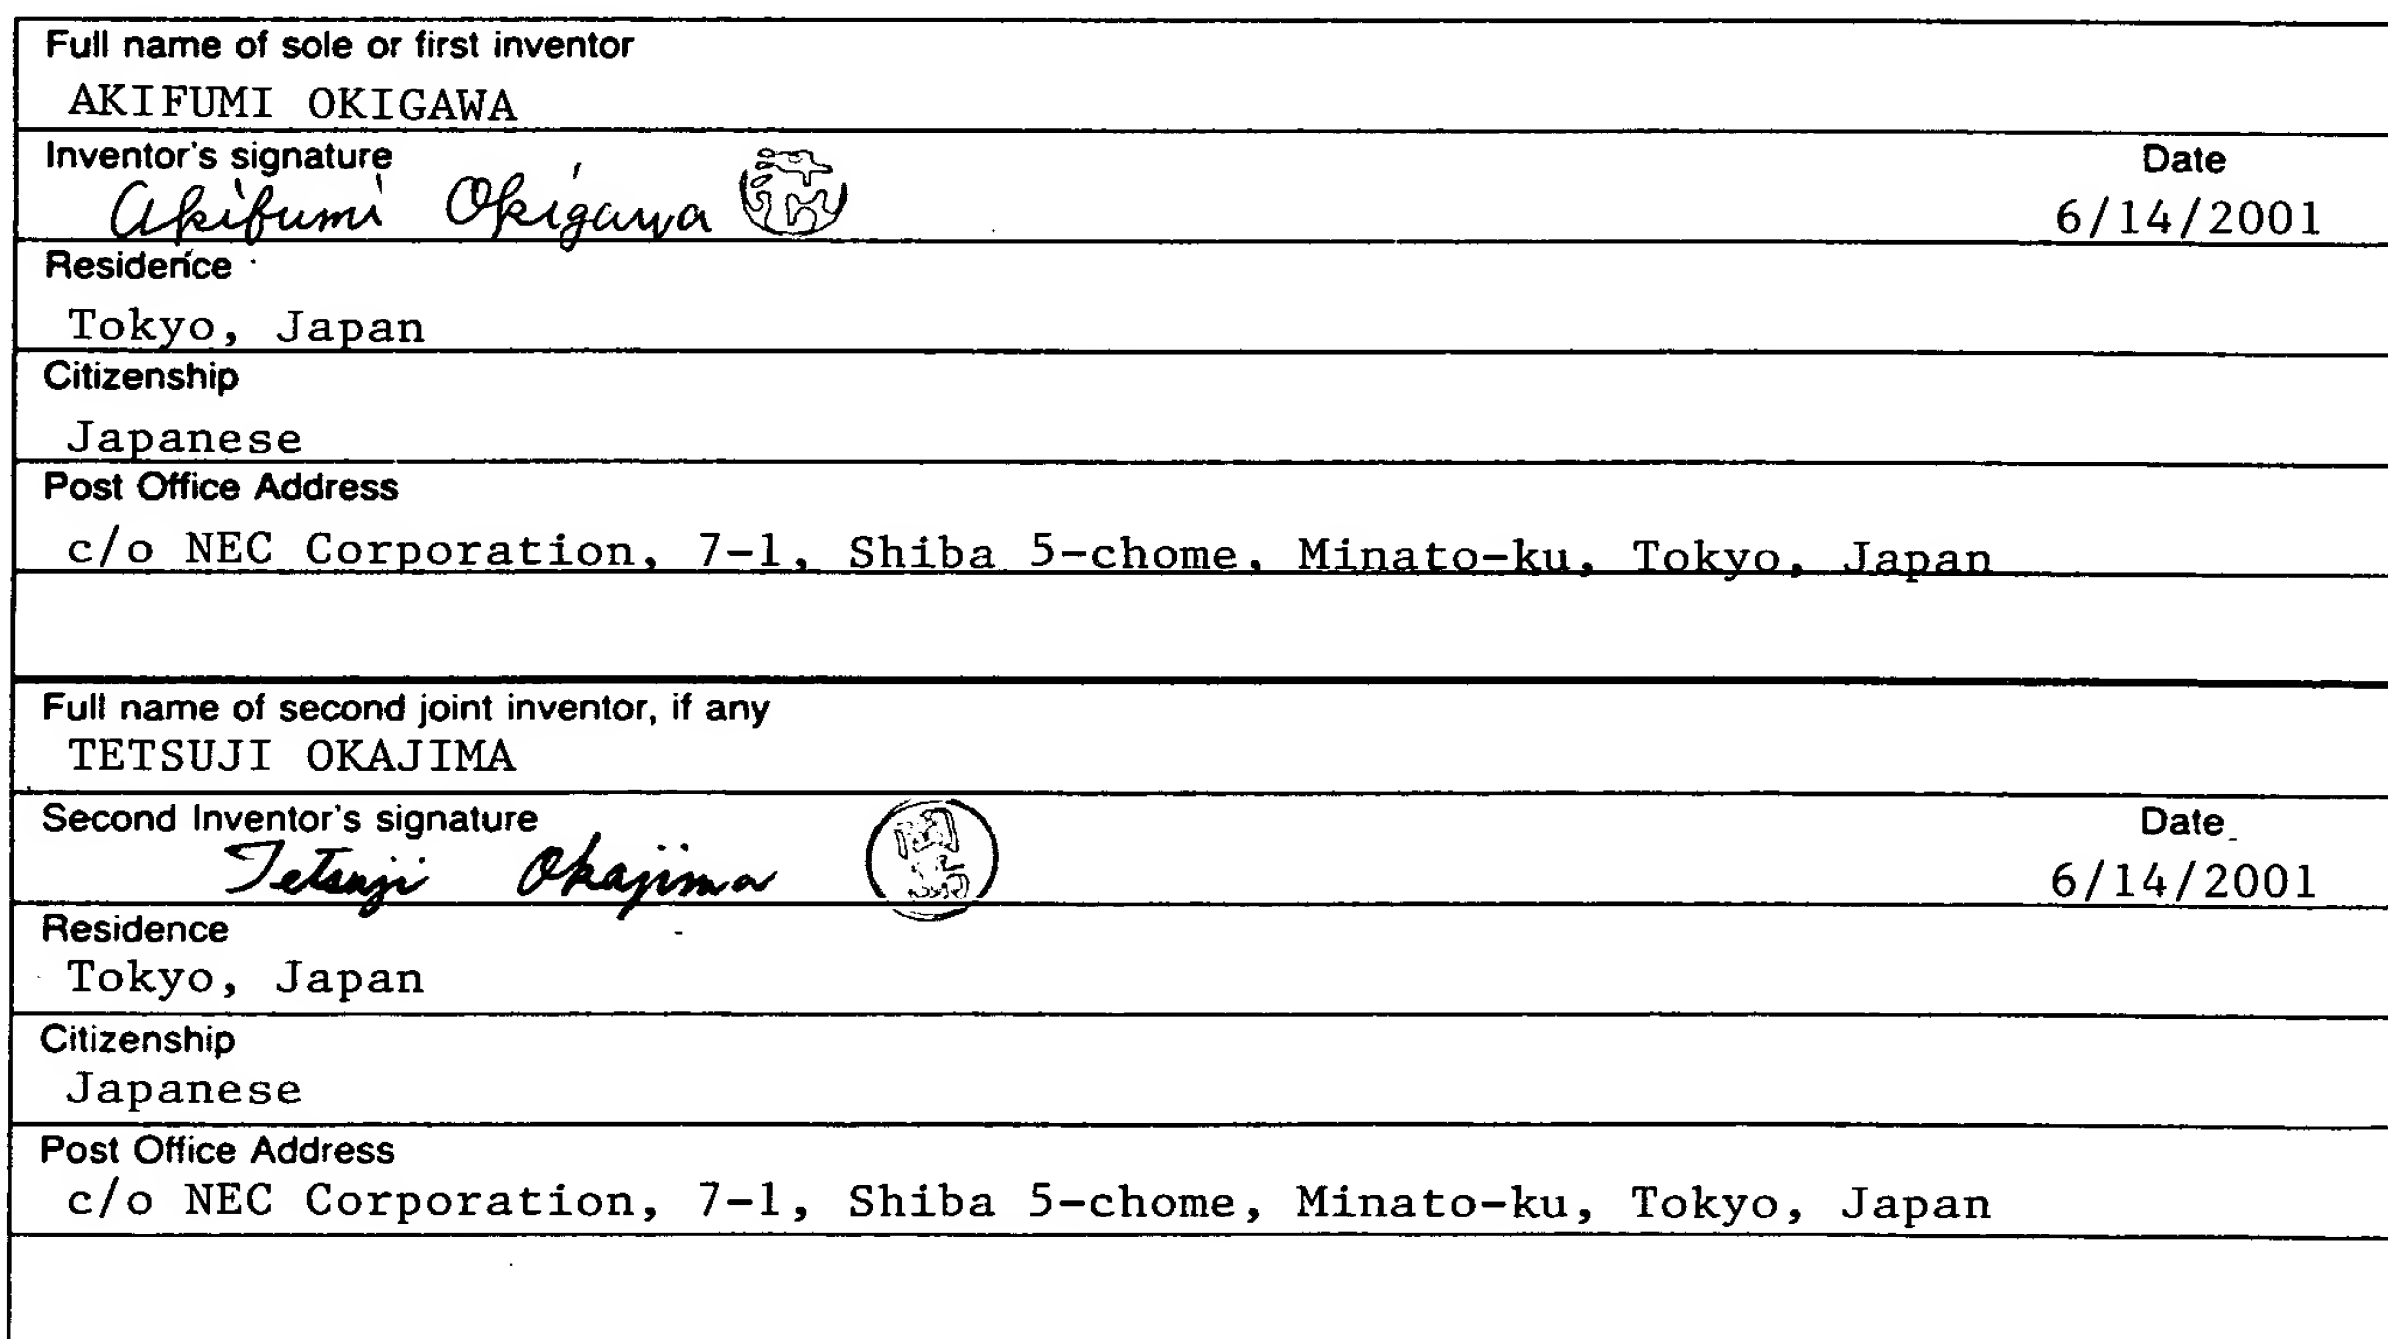 Full name of sole or first inventor
AKIFUMI OKIGAWA
Inventor's signature
Date
Akifumi Okigawa
6/14/2001
Residence
Tokyo, Japan
Citizenship
Japanese
Post Office Address
c/o NEC Corporation, 7-1, Shiba 5-chome, Minato-ku, Tokyo, Japan
Full name of second joint inventor, if any
TETSUJI OKAJIMA
Second Inventor's signature
Date
Tetsuji Okajima
6/14/2001
Residence
Tokyo, Japan
Citizenship
Japanese
Post Office Address
c/o NEC Corporation, 7-1, Shiba 5-chome, Minato-ku, Tokyo, Japan